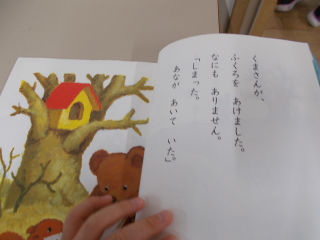 くまさんが、
ふくろを あけました。
なにも ありません。
「しまった。
あなが あいて いた。」